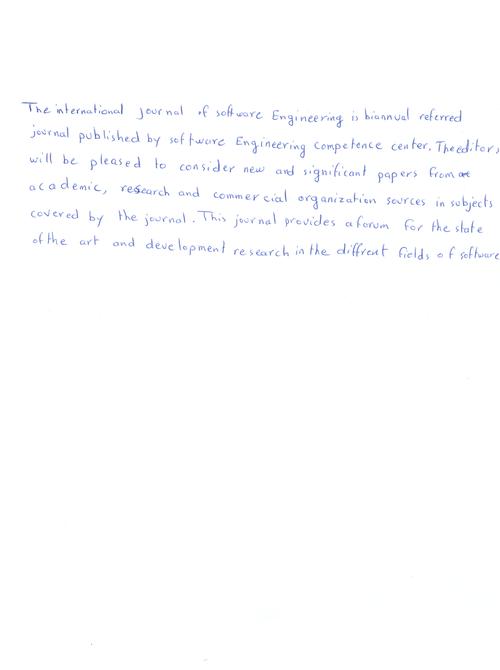 The international journal of software Engineering is biannual referred
journal published by software Engineering competence center. The editors
will be pleased to consider new and significant papers from
academic, research and commercial organization sources in subjects
covered by the journal. This journal provides a forum for the state
of the art and development research in the diffrent fields of software